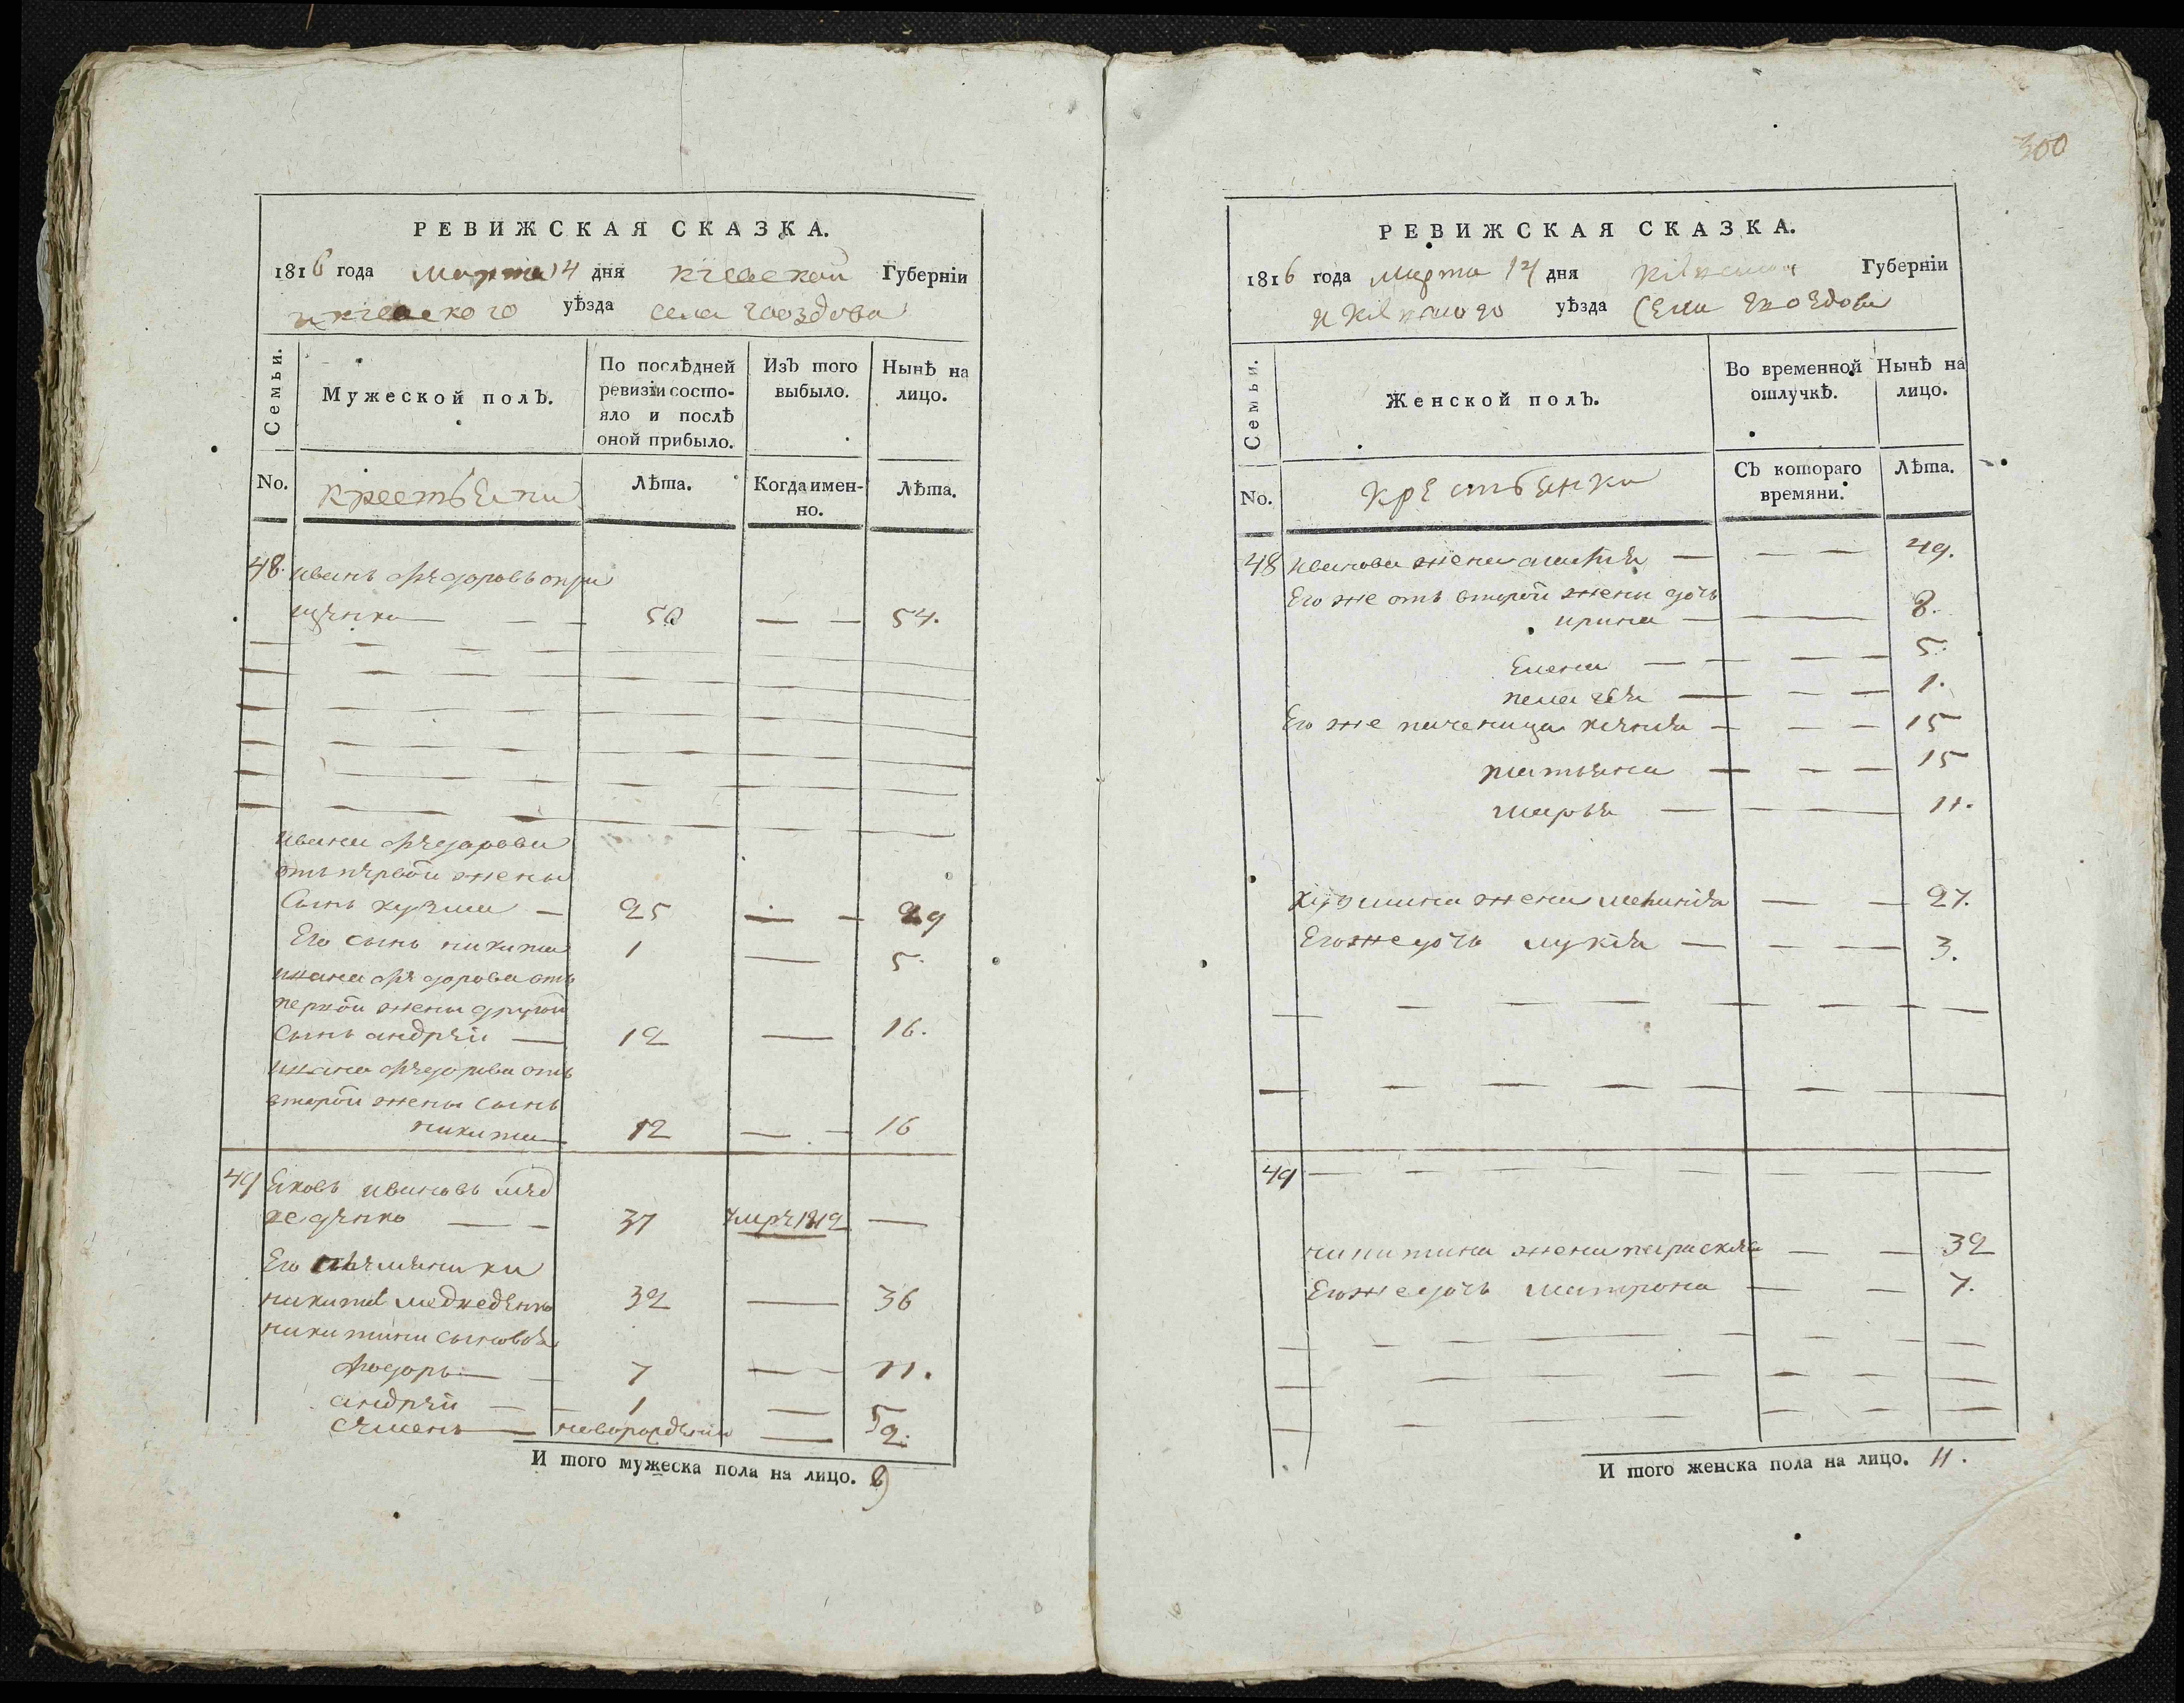 РЕВИЖСКАЯ СКАЗКА.
1816 года марта 14 дня кіевской Губерніи
и кіевского уѣзда села гвоздова
Семьи.
Мужеской полъ.
По послѣдней ревизіи состояло и послѣ оной прибыло.
Изъ того выбыло.
Нынѣ на лицо.
No.
крестьяни
Лѣта.
Когда именно.
Лѣта.
48. иванъ федоровъ
50 — — 54.
ивана федорова
отъ первой жены
Сынъ кузма — 25 — — 29
Его сынъ никита 1 — 5.
ивана федорова отъ
первой жены другой
Сынъ андрей — 12 — 16.
ивана федорова отъ
второй жены сынъ
никита 12 — — 16
49 Яковъ ивановъ мед
ведѣнко — — 37 умре 1812 —
Его племяники
никита медведѣнко 32 — 36
никитини сыновья
федоръ — 7 — — 11.
андрей — — 1 — 5
семенъ — новорожденъ — 2.
И того мужеска пола на лицо. 8
300
РЕВИЖСКАЯ СКАЗКА.
1816 года марта 14 дня кіевской Губерніи
и кіевского уѣзда Села гвоздова
Семьи.
Женской полъ.
Во временной отлучкѣ.
Нынѣ на лицо.
No.
крестьянки
Съ котораго времяни.
Лѣта.
48 иванова жена — — — 49.
Его же отъ второй жены дочь
ирина — — 8.
Елена — — — — 5.
пелагея — — — 1.
Его же паченица ксения — — — 15
татьяна — — — 15
марья — — 11.
кузмина жена меланія — — 27.
Его же дочь лукія — — — 3.
49 — — — — — — —
никитина жена параскева — — 32
Его же дочь матрона — — 7.
И того женска пола на лицо. 11.